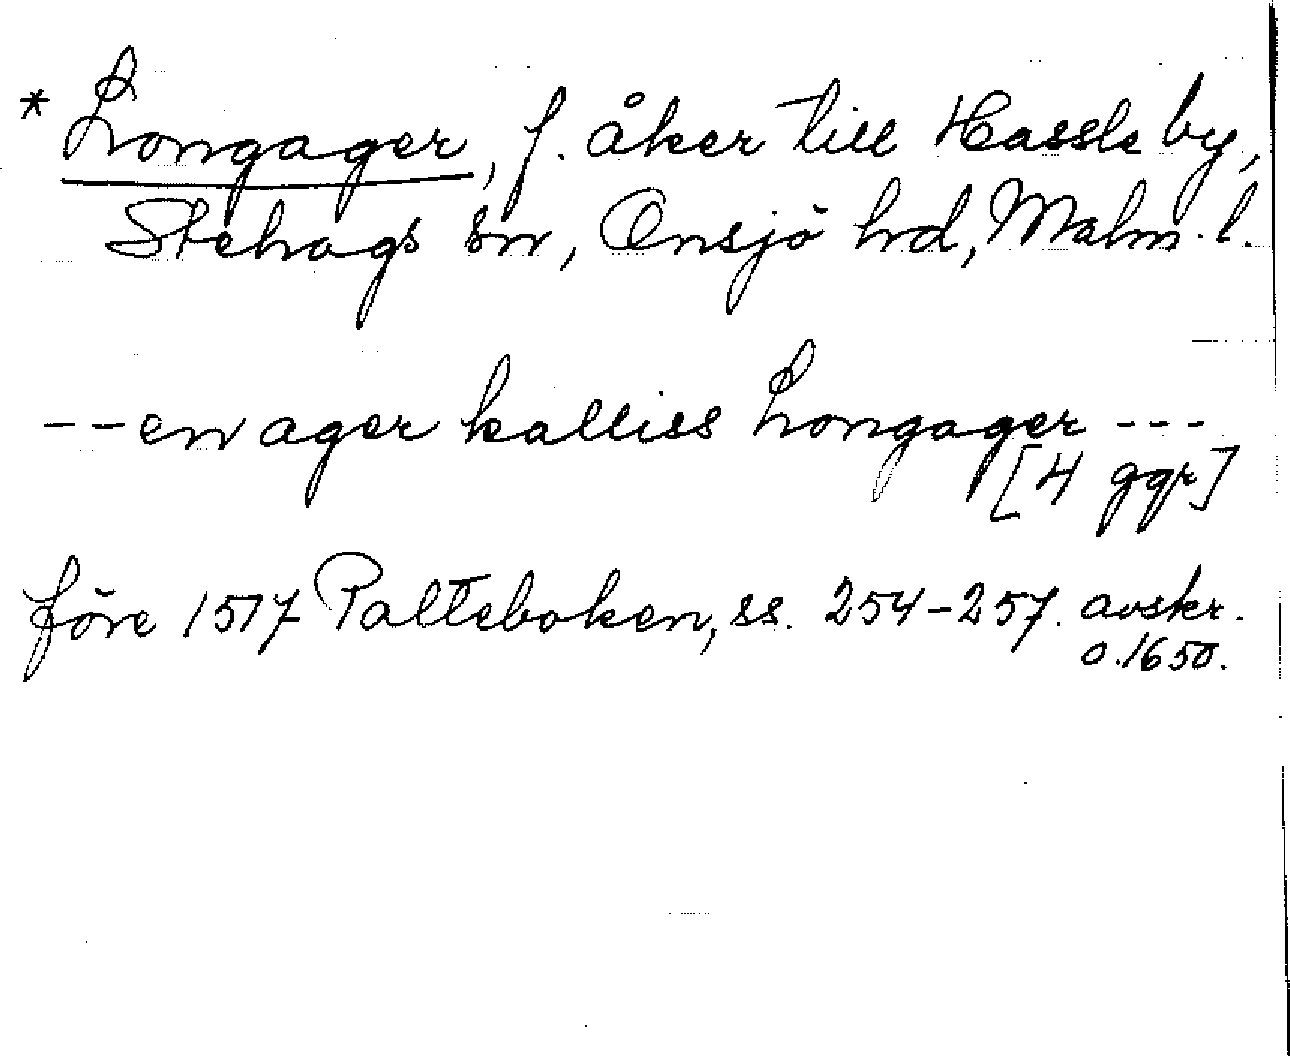 * Longager, f. åker till Hassle by,
Stehags sn, Onsjö hrd, Malm. l.
--en ager kalliss Longager ---
[4 ggr]
före 1517 Palteboken, ss. 254-257. avskr.
o. 1650.